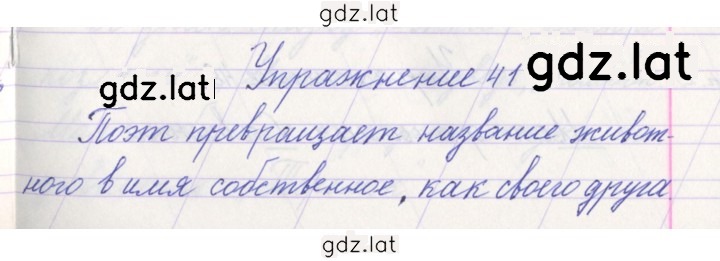 gdz.lat
gdz.lat
Упражнение 41
gdz.lat
Поэт превращает название живот-
ного в имя собственное, как своего друга
gdz.lat